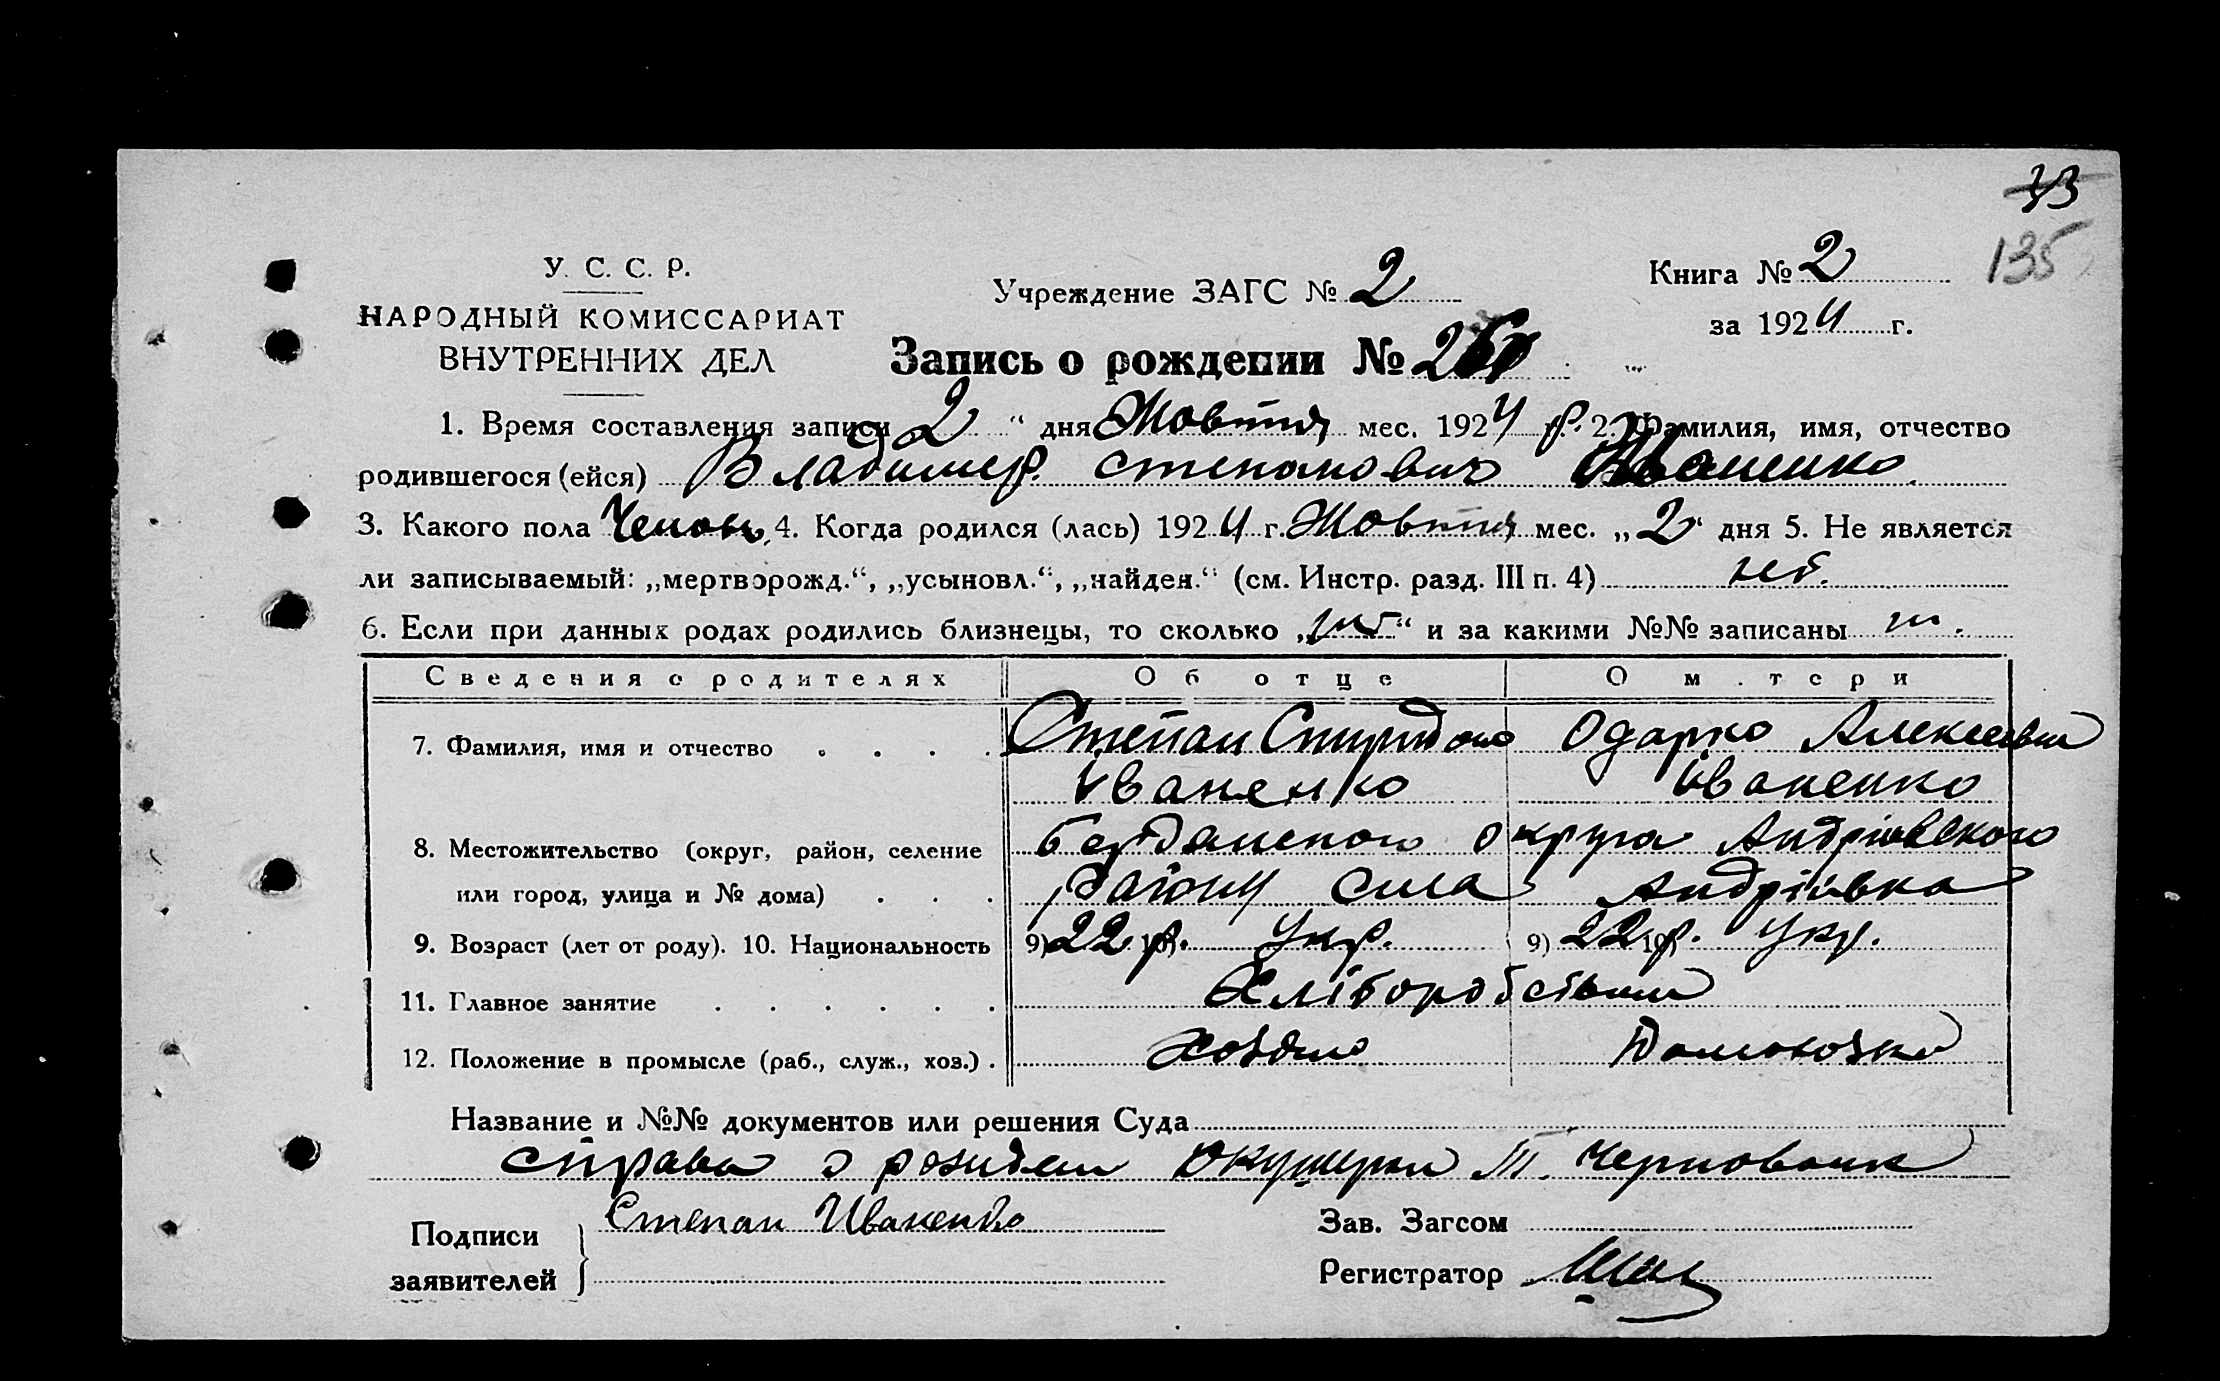 33
135
У. С. С. Р.
НАРОДНЫЙ КОМИССАРИАТ
ВНУТРЕННИХ ДЕЛ
Учреждение ЗАГС № 2
Книга № 2
за 1924 г.
Запись о рождении №
1. Время составления записи 2 " дня Жовтня мес. 1924 р. 2. Фамилия, имя, отчество
родившегося (ейся) Владимер. степанович Иваненко
3. Какого пола 4. Когда родился (лась) 1924 г. Жовтня мес. „2" дня 5. Не является
ли записываемый: „мертворожд.", „усыновл.", „найден." (см. Инстр. разд. III п. 4)
6. Если при данных родах родились близнецы, то сколько „ " и за какими №№ записаны
Сведения о родителях Об отце О м.тери
7. Фамилия, имя и отчество . . . . Степан Одарко
Іваненко Іваненко
8. Местожительство (округ, район, селение округа Андріівского
или город, улица и № дома) . . . району села Андріівка
9. Возраст (лет от роду). 10. Национальность 9) 22 р. Укр. 9) 22 р. Укр.
11. Главное занятие . . . . . .
12. Положение в промысле (раб., служ., хоз.) .
Название и №№ документов или решения Суда
о Т.
Подписи
заявителей
Степан Иваненко
Зав. Загсом
Регистратор